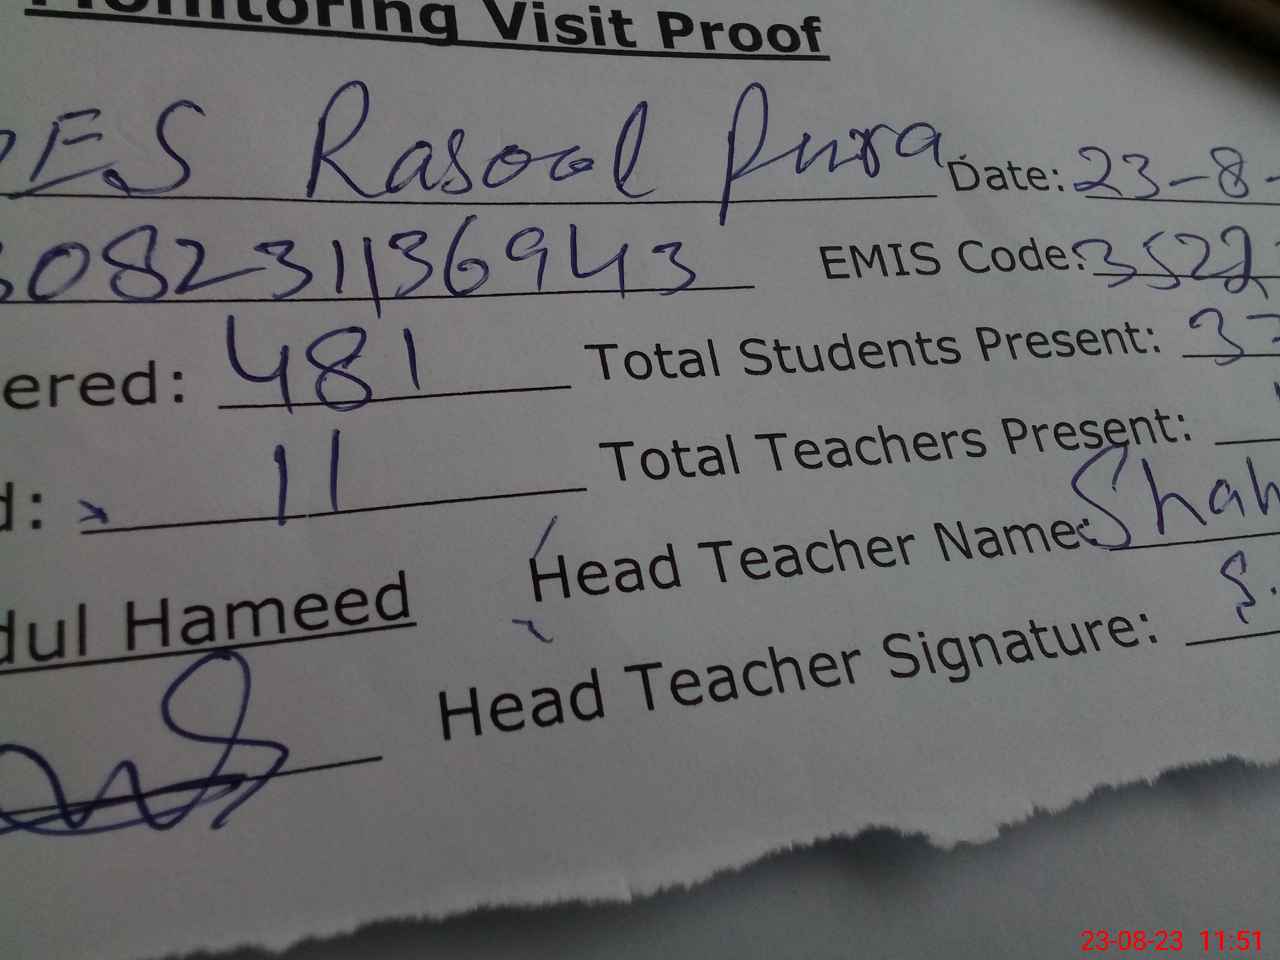 Monitoring Visit Proof
ES Rasool Pura Date: 23-8-
08231136943 EMIS Code: 3522
ered: 481 Total Students Present: 3
d: 11 Total Teachers Present:
dul Hameed Head Teacher Name: Shah
Head Teacher Signature: S.
23-08-23 11:51